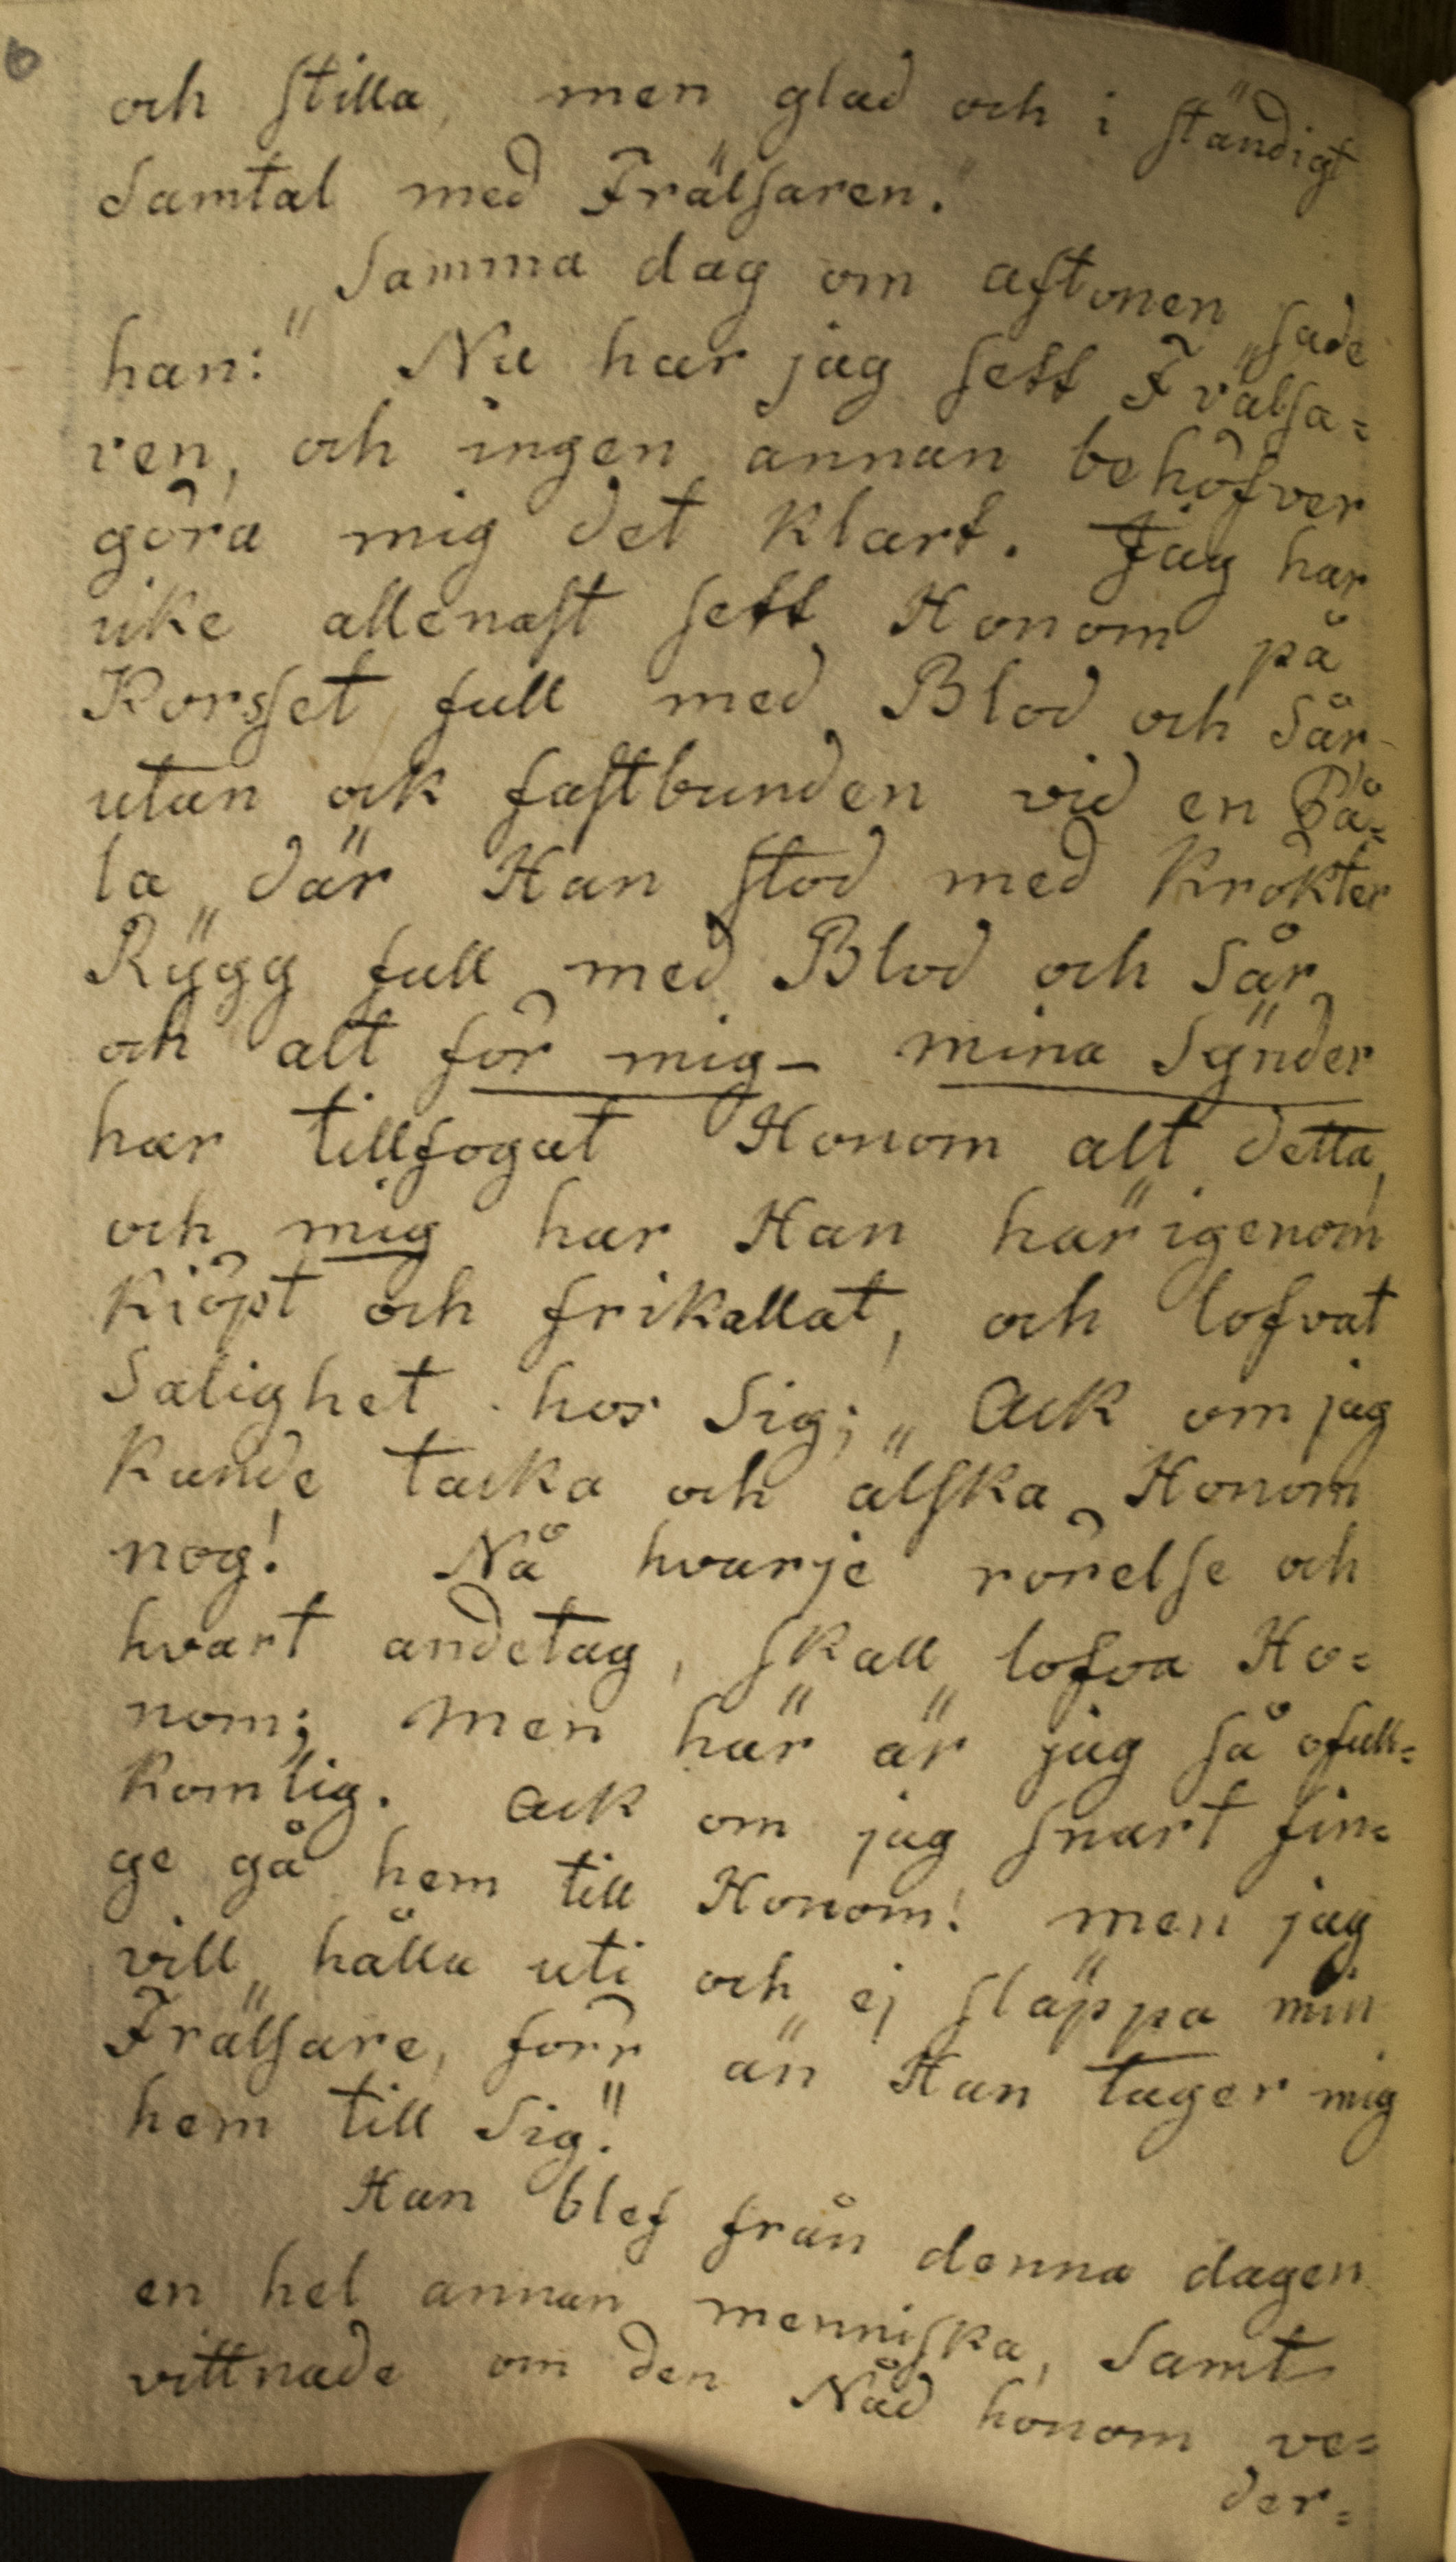 6
och stilla, men glad och i ständigt
Samtal med Frälsaren."
Samma dag om aftonen sade
han: "Nu har jag sett Frälsa=
ren, och ingen annan behöfver
göra mig det klart. Jag har
icke allenast sett Honom på
Korsset full med Blod och Sår
utan ock fastbunden vid en På=
la där Han stod med Krökter
Rÿgg full med Blod och Sår
och alt för mig – mina Sÿnder
har tillfogat Honom alt detta,
och mig har Han härigenom
Kiöpt och frikallat, och lofvat
Salighet hos Sig; Ack om jag
Kunde tacka och älska Honom
nog! Nå hvarje rörelse och
hvart andetag, skall lofva Ho=
nom; men här är jag så ofull=
komlig. Ack om jag snart fin=
ge gå hem till Honom! men jag
vill hålla uti och ej släppa min
Frälsare, förr än Han tager mig
hem till Sig!"
Han blef från denna dagen
en hel annan menniska, Samt
vittnade om den Nåd honom ve=
der=